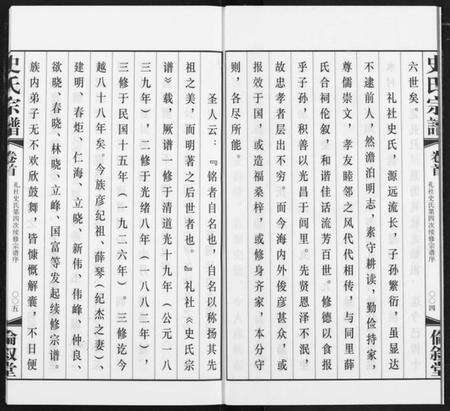 史氏宗譜
卷首
礼社史氏第四次续修宗谱序
〇〇四
倫叙堂
六世矣。
礼社史氏，源远流长，子孙繁衍，虽显达
不逮前人，然澹泊明志，素守耕读，勤俭持家，
尊儒崇文，孝友睦邻之风代代相传，与同里薛
氏合祠伦叙，和谐佳话流芳百世。修德以食报
乎子孙，积善以光昌于闾里。先贤恩泽不泯，
故忠孝者层出不穷。而今海内外俊彦甚众，或
报效于国，或造福桑梓，或修身齐家，本分守
则，各尽所能。
圣人云：『铭者自名也，自名以称扬其先
祖之美，而明著之后世者也。』礼社《史氏宗
谱》载，厥谱一修于清道光十九年（公元一八
三九年），二修于光绪八年（一八八二年），
三修于民国十五年（一九二六年）。三修讫今
越八十八年矣。今族彦纪祖、薛琴（纪杰之妻）、
建明、春炬、仁海、立晓、新伟、伟峰、仲良、
欲晓、春晓、林晓、立峰、国富等发起续修宗谱。
族内弟子无不欢欣鼓舞，皆慷慨解囊，不日便
史氏宗譜
卷首
礼社史氏第四次续修宗谱序
〇〇五
倫叙堂